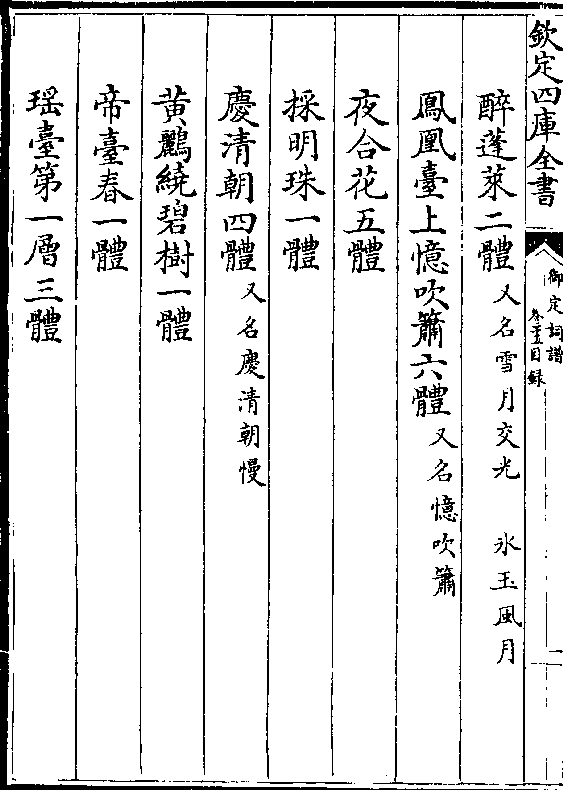 欽定四庫全書
御定詞譜
卷二十五目録
一
醉蓬萊二體 又名雪月交光 氷玉風月
鳳凰臺上憶吹簫六體 又名憶吹簫
夜合花五體
採明珠一體
慶清朝四體 又名慶清朝慢
黄鸝繞碧樹一體
帝臺春一體
瑶臺第一層三體